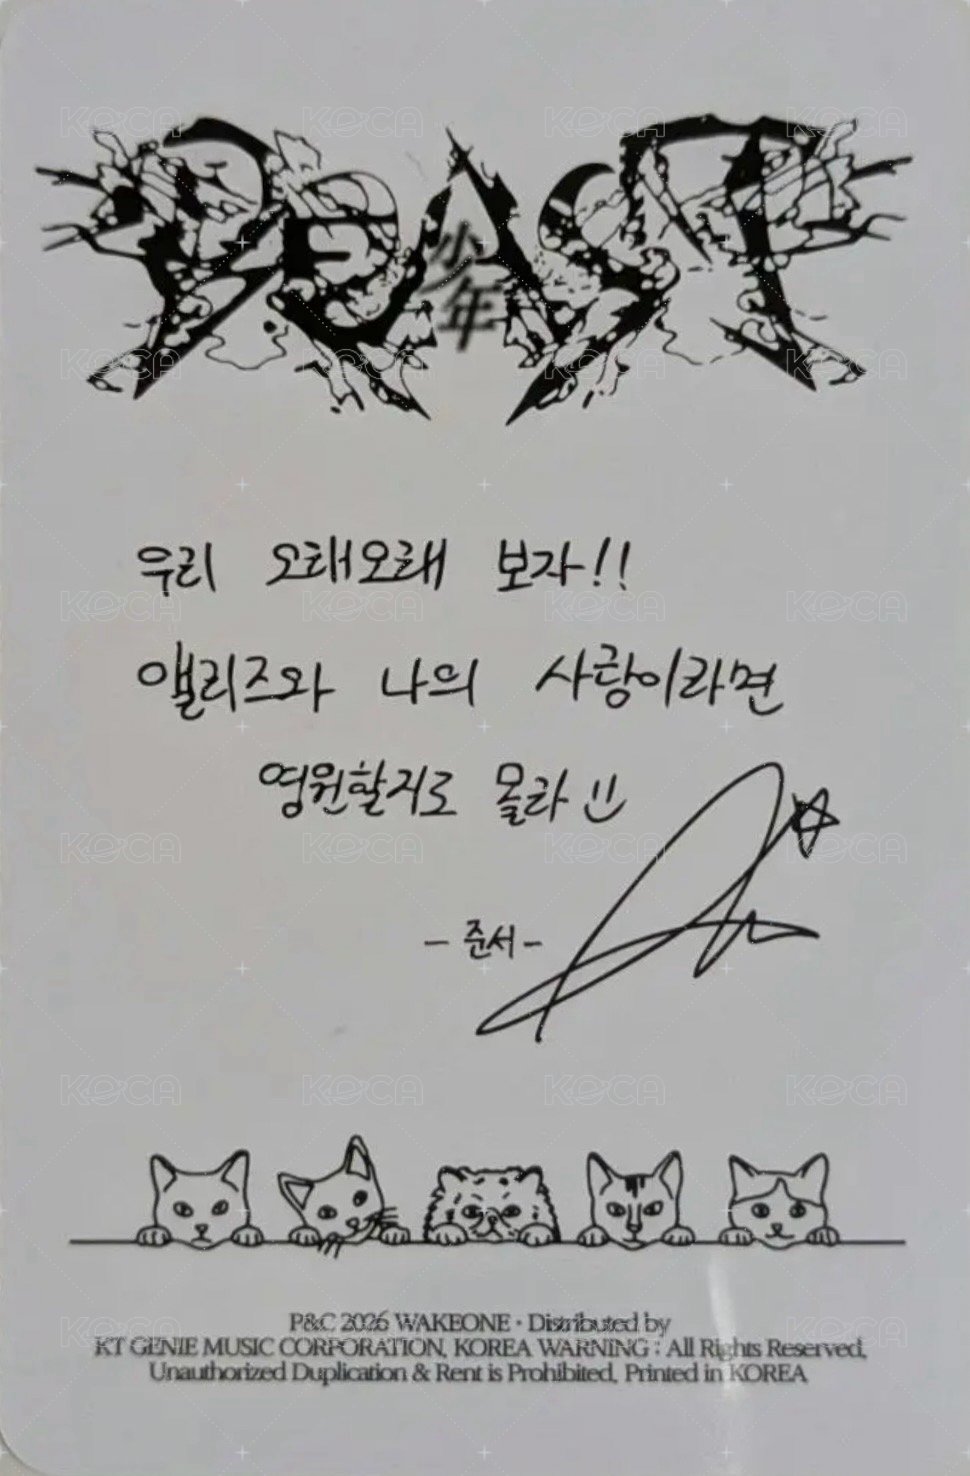 BEAST
少年
우리 오래오래 보자!!
앨리즈와 나의 사랑이라면
영원할지로 몰라
- 준서 -
P&C 2026 WAKEONE • Distributed by
KT GENIE MUSIC CORPORATION, KOREA WARNING : All Rights Reserved.
Unauthorized Duplication & Rent is Prohibited, Printed in KOREA
KOCA